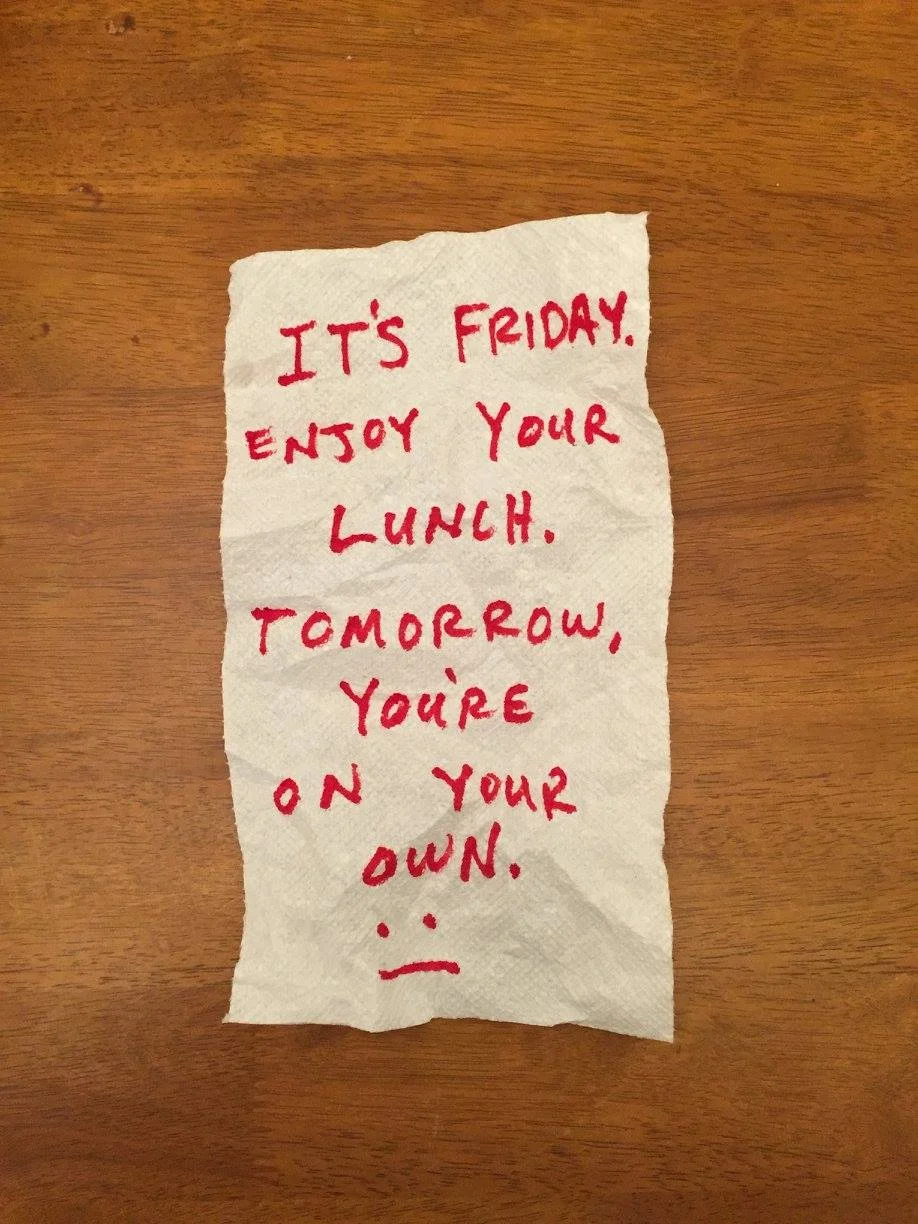 IT'S FRIDAY.
ENJOY YOUR
LUNCH.
TOMORROW,
YOU'RE
ON YOUR
OWN.